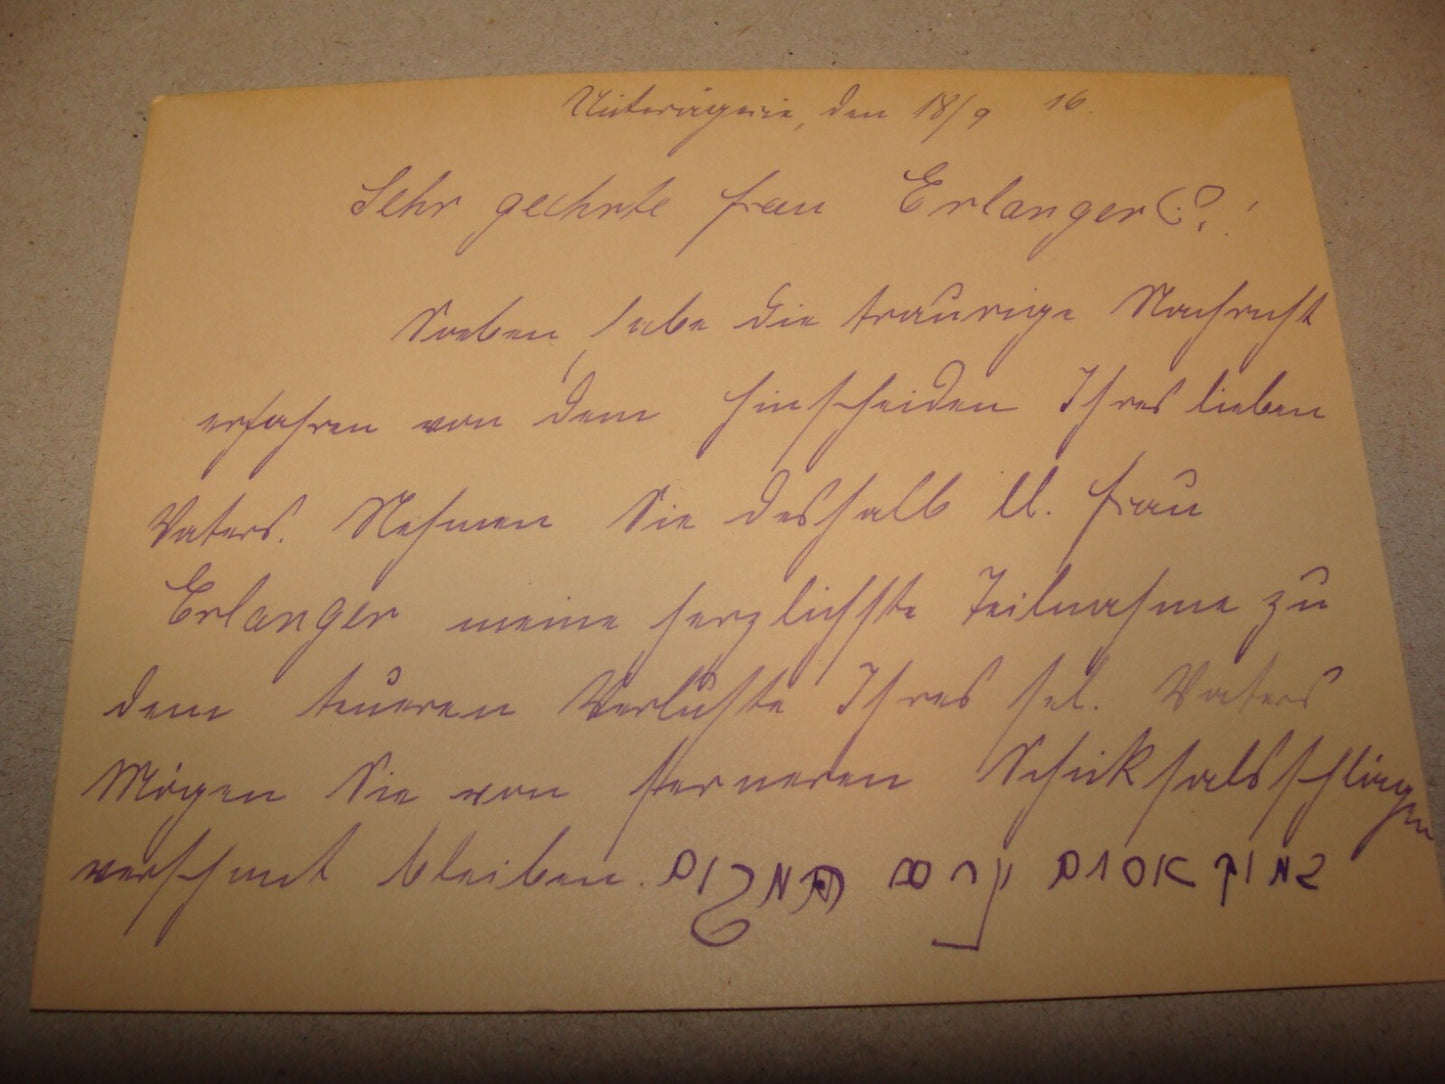 Unterägerie, den 18/9 16.
Sehr geehrte Frau Erlanger(?)!
Soeben habe die traurige Nachricht
erfahren von dem Hinscheiden Ihres lieben
Vaters. Nehmen Sie deshalb ll. Frau
Erlanger meine herzlichste Teilnahme zu
dem teueren Verluste Ihres sel. Vaters
Mögen Sie von ferneren Schicksalsschlägen
verschont bleiben.